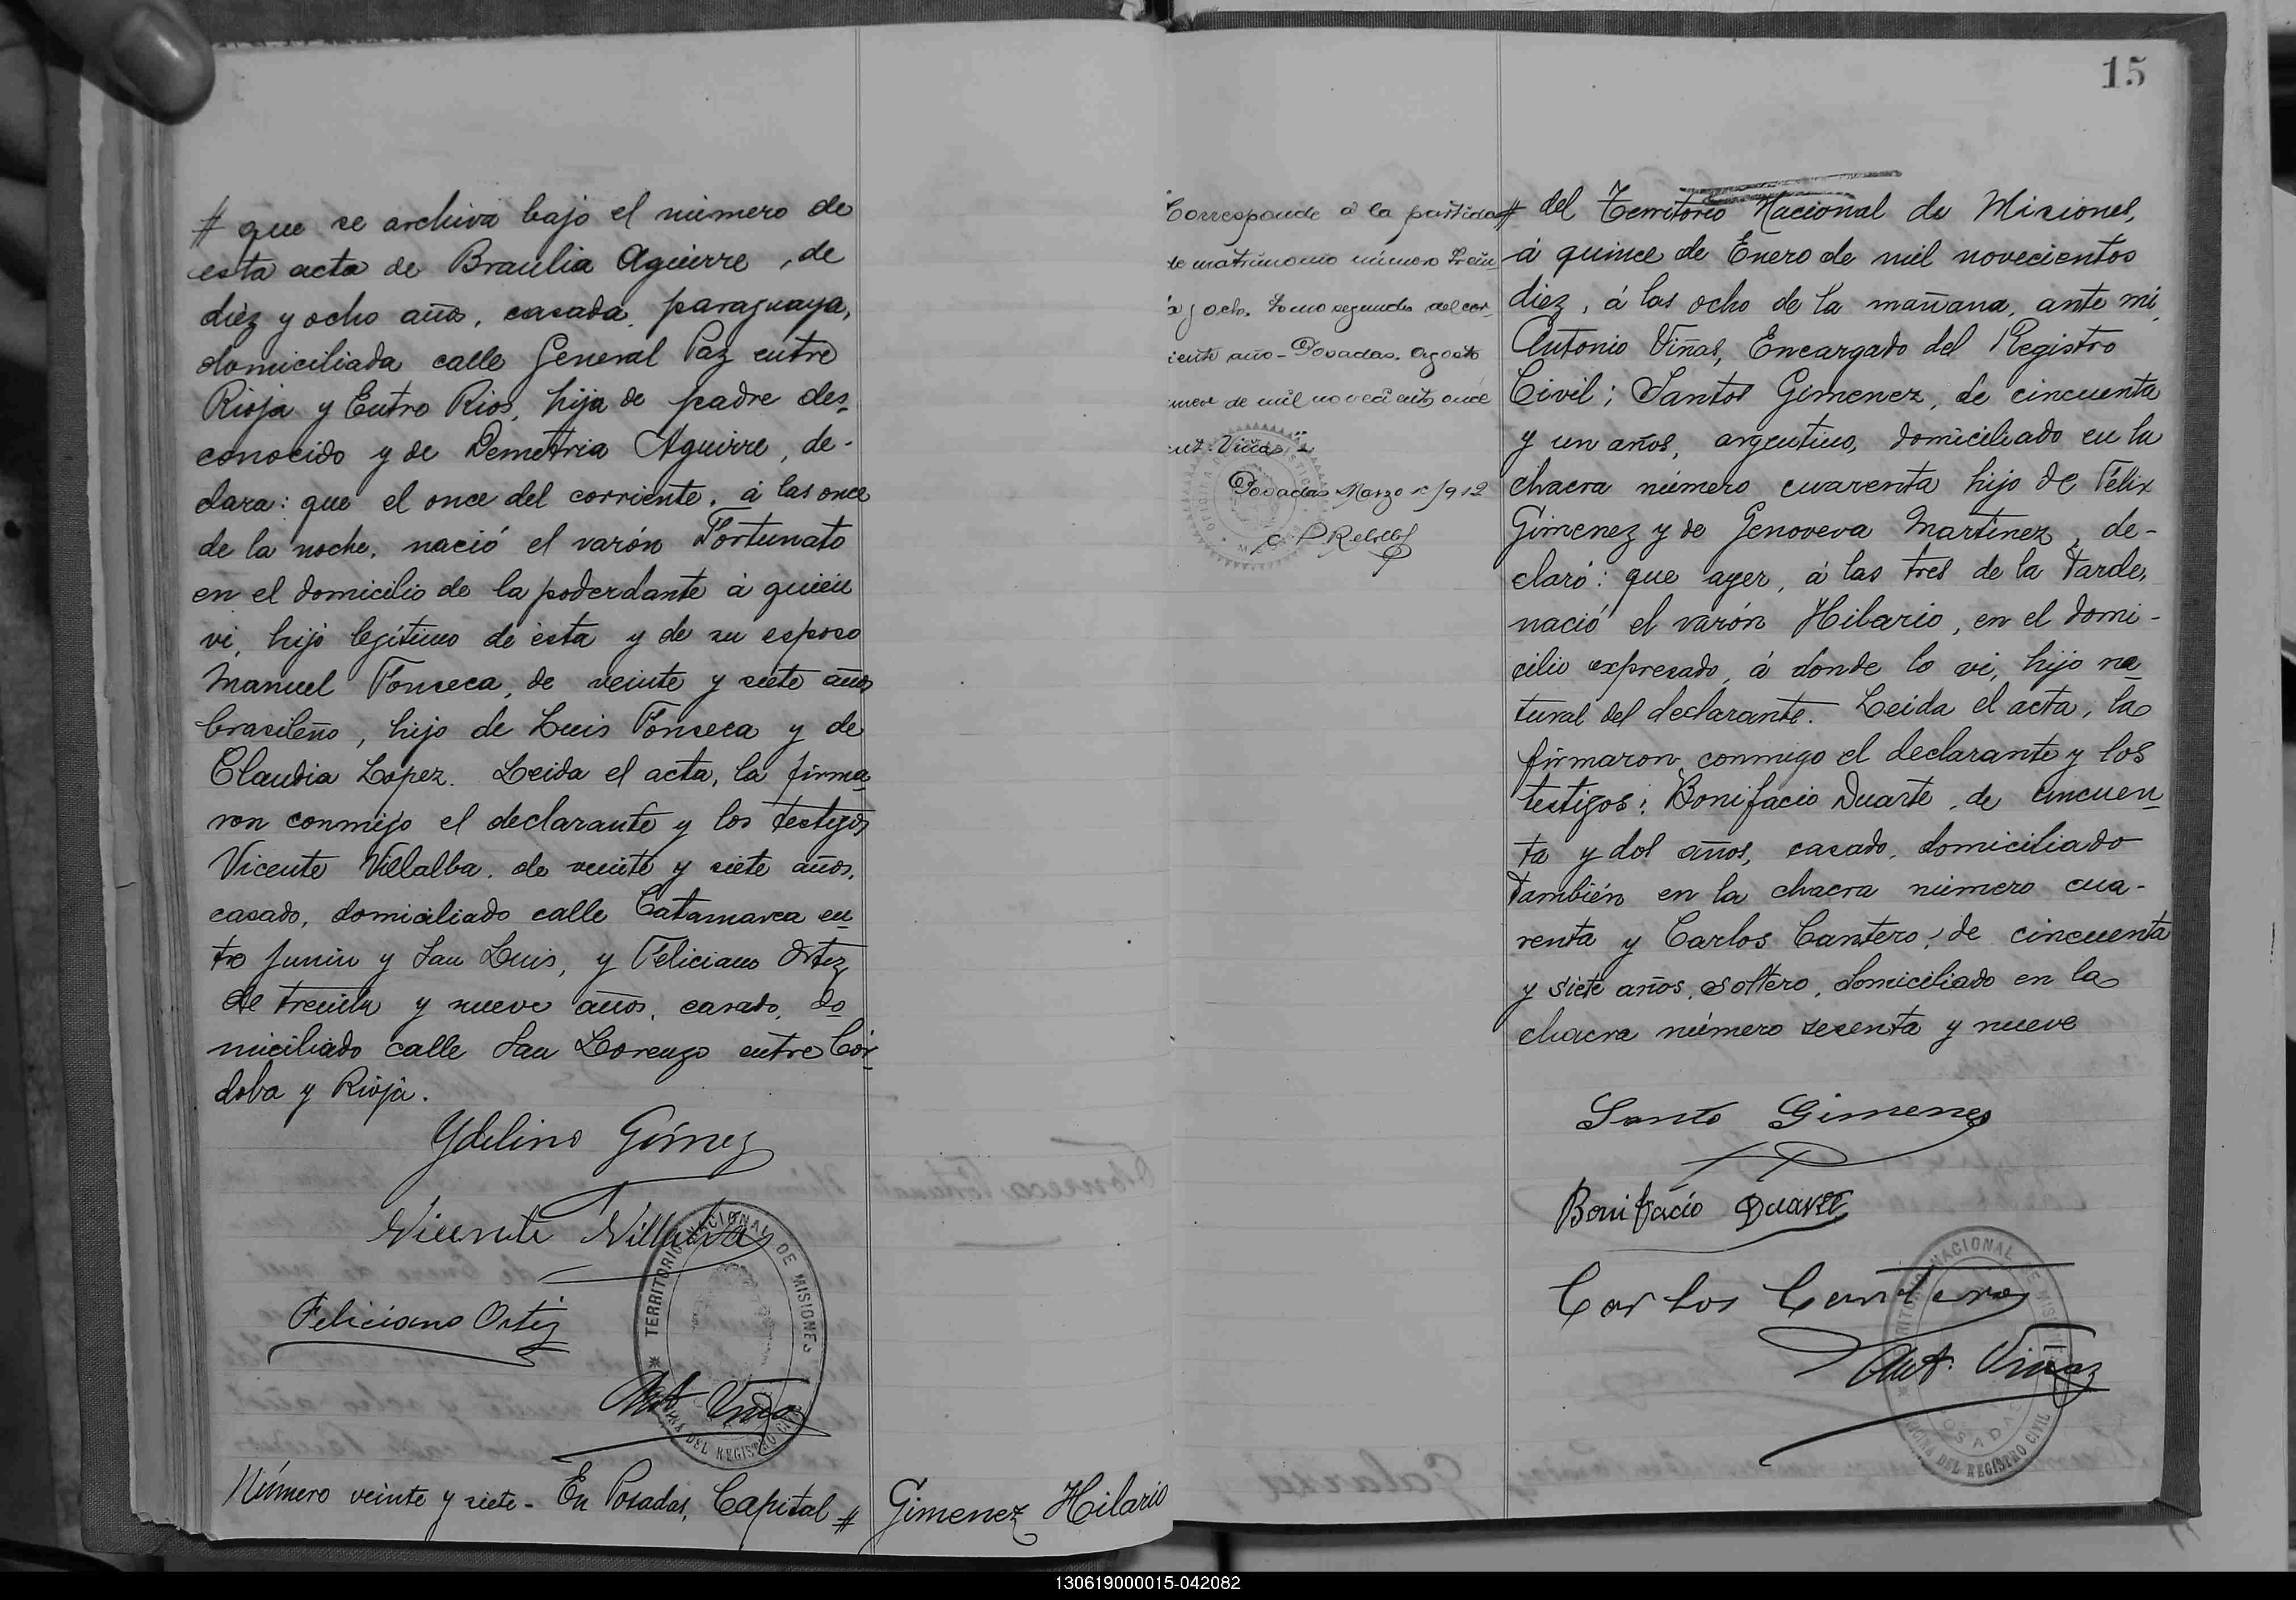 # que se archiva bajo el número de
esta acta de Braulia Aguirre, de
diez y ocho años, casada, paraguaya,
domiciliada calle General Paz entre
Rioja y Entre Rios, hija de padre des-
conocido y de Demetria Aguirre, de-
clara: que el once del corriente, á las once
de la noche, nació el varón Fortunato
en el domicilio de la poderdante á quien
vi, hijo legítimo de ésta y de su esposo
Manuel Fonseca, de veinte y siete años
brasileño, hijo de Luis Fonseca y de
Claudia Lopez. Leida el acta, la firma-
ron conmigo el declarante y los testigos
Vicente Villalba, de veinte y siete años,
casado, domiciliado calle Catamarca en-
tre Junin y San Luis, y Feliciano Ortiz,
de treinta y nueve años, casado, do-
miciliado calle San Lorenzo entre Cór-
doba y Rioja.
Ydelino Gómez
Vicente Villalba
Feliciano Ortiz
TERRITORIO NACIONAL DE MISIONES
DEL REGISTRO CIVIL
Ant. Viñas
Número veinte y siete - En Posadas, Capital #
Gimenez Hilario
15
Corresponde á la partida
de matrimonio número Trein-
ta y ocho. Tomo segundo del cor-
riente año - Posadas. Agosto
de mil novecientos once
Ant. Viñas
Posadas Marzo 1912
# del Territorio Nacional de Misiones,
á quince de Enero de mil novecientos
diez, á las ocho de la mañana, ante mi,
Antonio Viñas, Encargado del Registro
Civil; Santos Gimenez, de cincuenta
y un años, argentino, domiciliado en la
chacra número cuarenta hijo de Félix
Gimenez y de Genoveva Martinez, de-
claró: que ayer, á las tres de la tarde,
nació el varón Hilario, en el domi-
cilio expresado, á donde lo vi, hijo na-
tural del declarante. Leida el acta, la
firmaron conmigo el declarante y los
testigos: Bonifacio Duarte, de cincuen-
ta y dos años, casado, domiciliado
también en la chacra número cua-
renta y Carlos Cantero, de cincuenta
y siete años, soltero, domiciliado en la
chacra número sesenta y nueve
Santo Gimenes
Bonifacio Duarte
Carlos Cantero
NACIONAL DE MISIONES
POSADAS
DEL REGISTRO CIVIL
Ant. Viñas
130619000015-042082